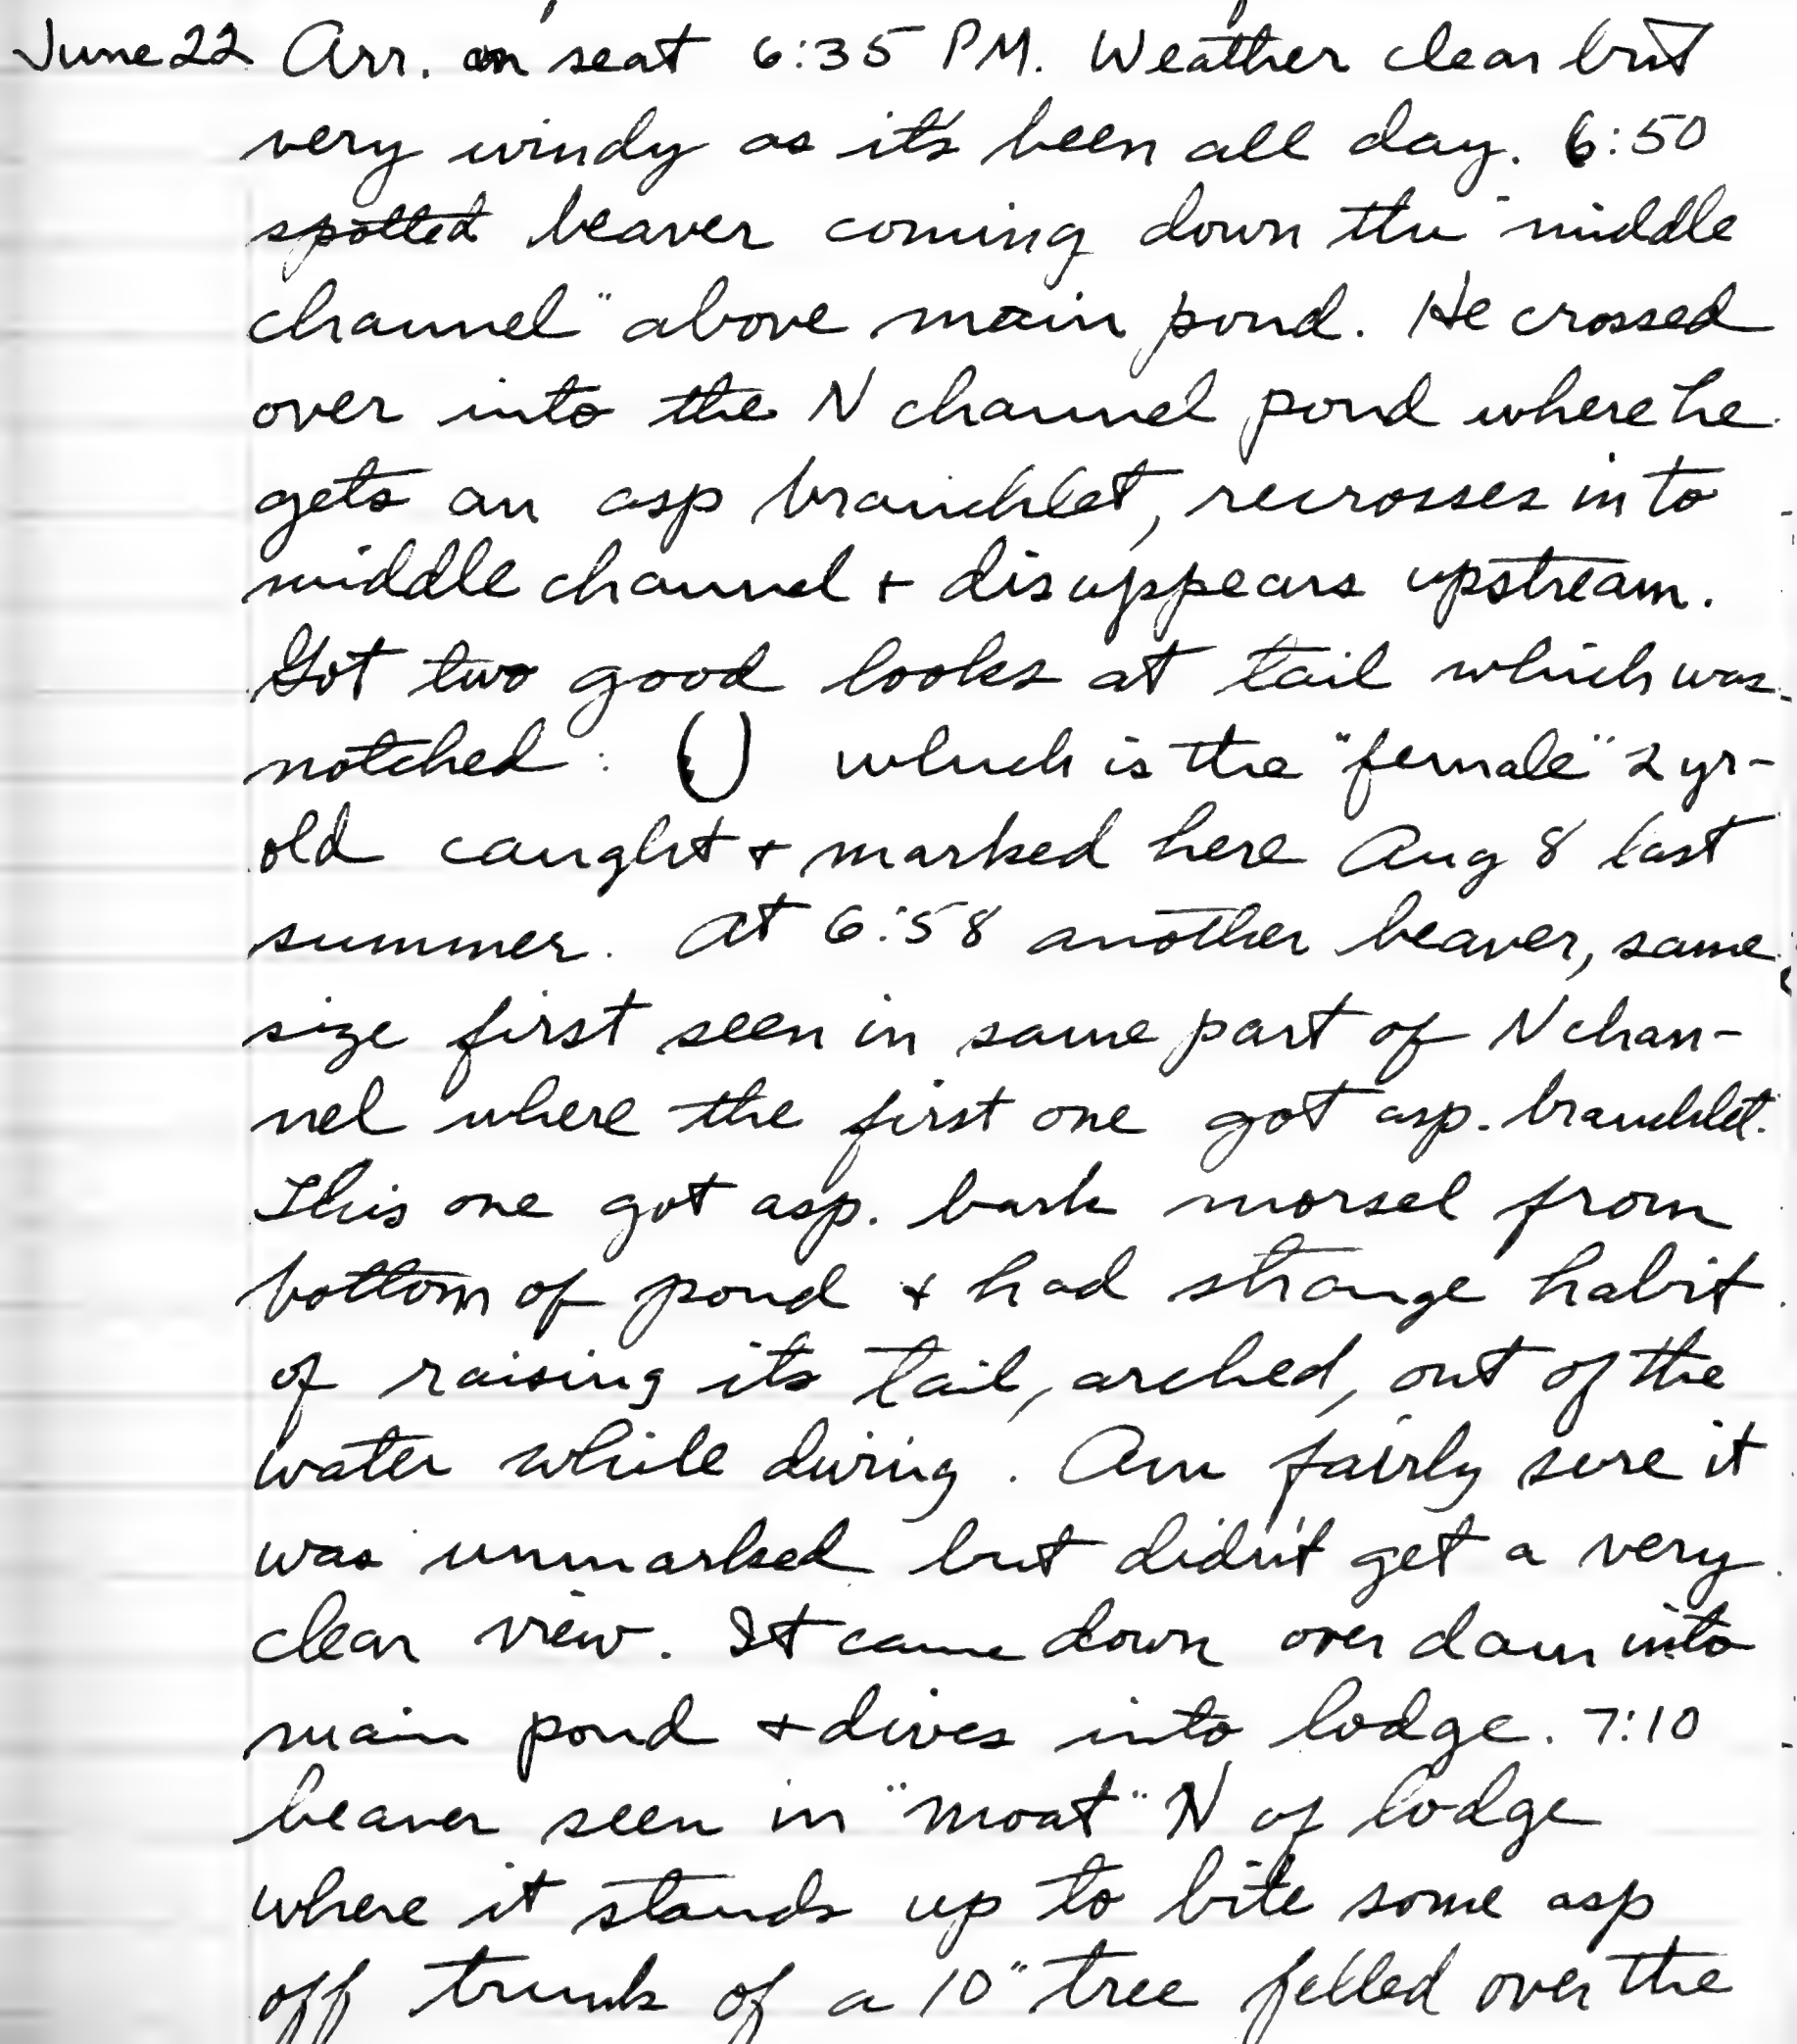 June 22 Arr. on seat 6:35 PM. Weather clear but
very windy as it's been all day. 6:50
spotted beaver coming down the "middle
channel" above main pond. He crossed
over into the N channel pond where he
gets an asp branchlet, recrosses into
middle channel + disappears upstream.
Got two good looks at tail which was
notched: which is the "female" 2 yr-
old caught + marked here Aug 8 last
summer. At 6:58 another beaver, same
size first seen in same part of N chan-
nel where the first one got asp. branchlet.
This one got asp. bark morsel from
bottom of pond + had strange habit
of raising its tail, arched, out of the
water while diving. Am fairly sure it
was unmarked but didn't get a very
clear view. It came down over dam into
main pond + dives into lodge. 7:10
beaver seen in "moat" N of lodge
where it stands up to bite some asp
off trunk of a 10" tree felled over the